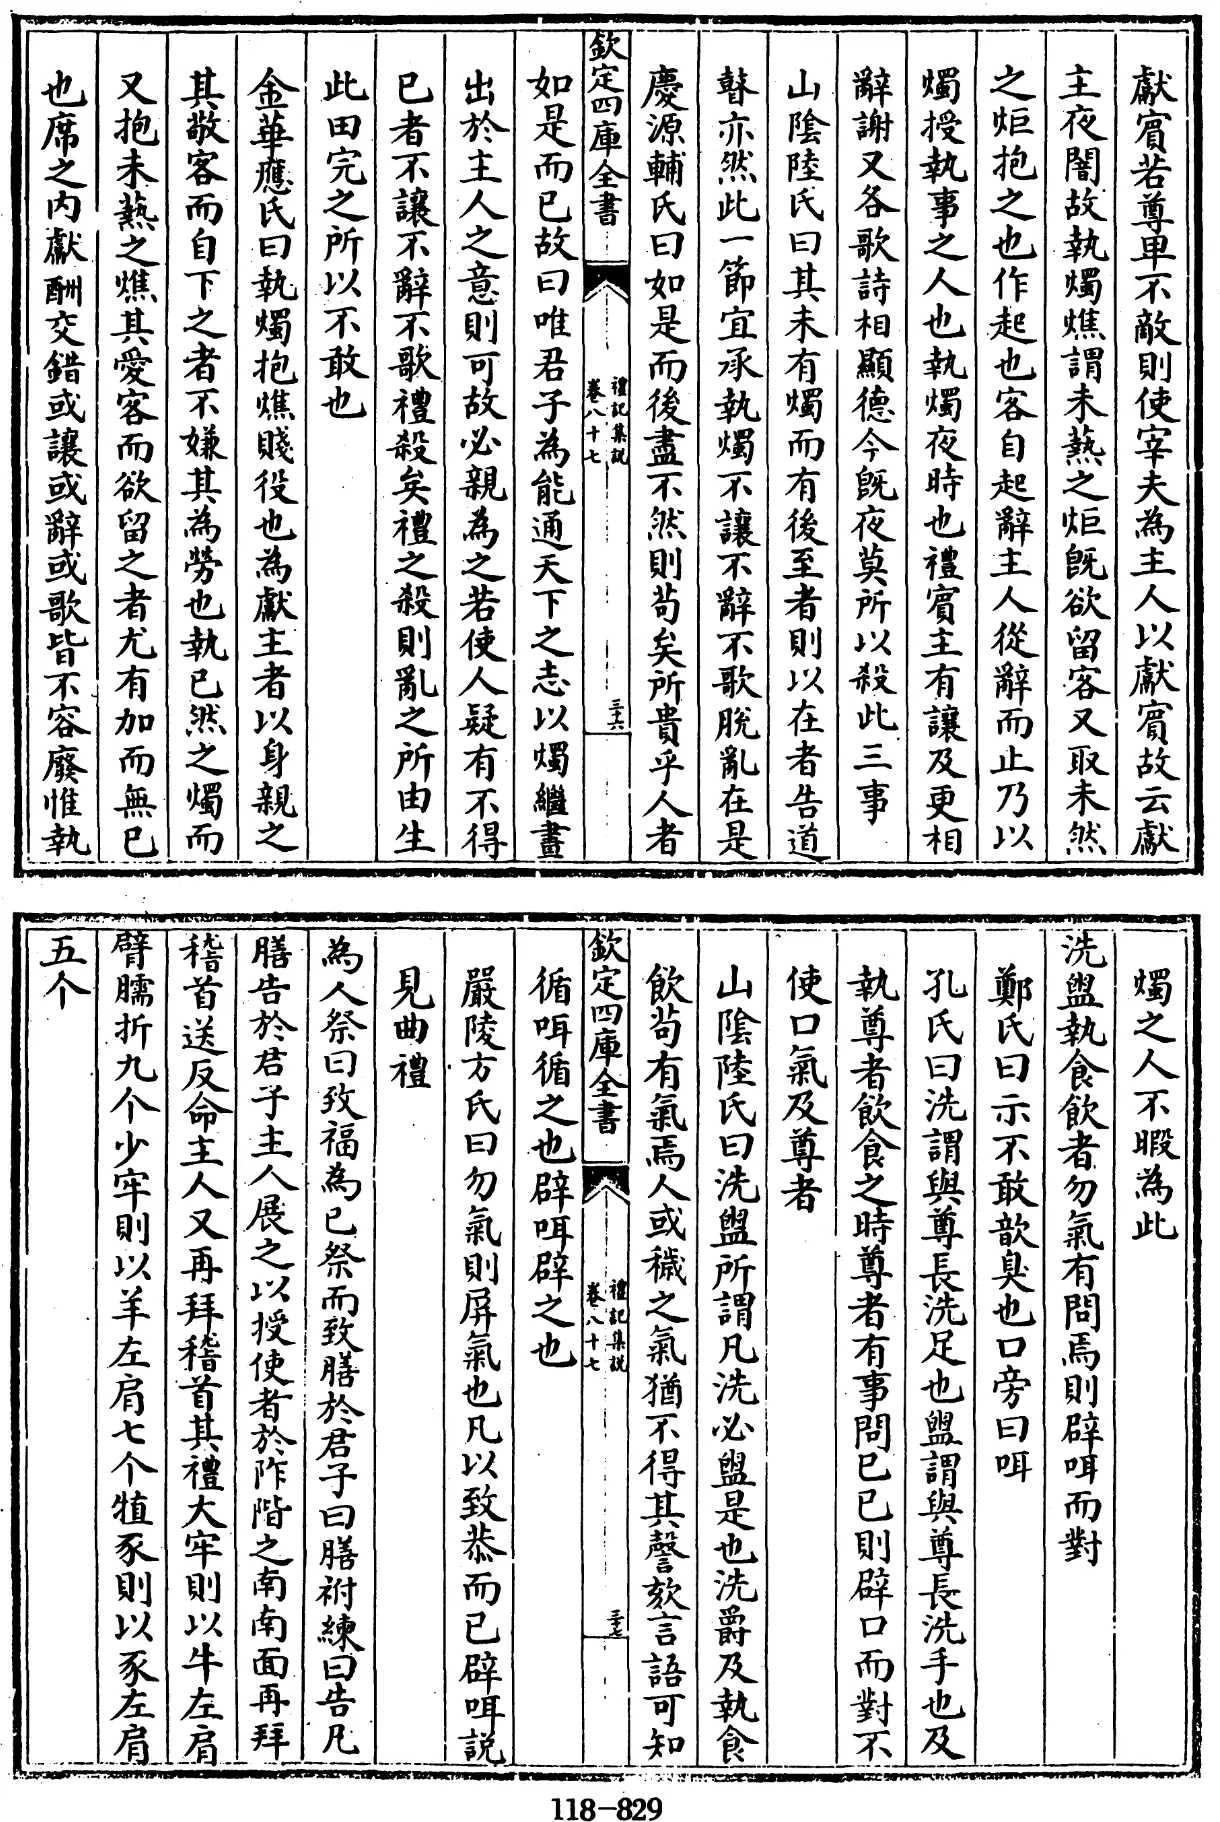 獻賔若尊卑不敵則使宰夫為主人以獻賔故云獻
主夜闇故執燭燋謂未爇之炬既欲留客又取未然
之炬抱之也作起也客自起辭主人從辭而止乃以
燭授執事之人也執燭夜時也禮賔主有讓及更相
辭謝又各歌詩相顯德今既夜莫所以殺此三事
山陰陸氏曰其未有燭而有後至者則以在者告道
瞽亦然此一節宜承執燭不讓不辭不歌脫亂在是
慶源輔氏曰如是而後盡不然則茍矣所貴乎人者
欽定四庫全書
禮記集說
卷八十七
三十六
如是而已故曰唯君子為能通天下之志以燭繼晝
出於主人之意則可故必親為之若使人疑有不得
已者不讓不辭不歌禮殺矣禮之殺則亂之所由生
此田完之所以不敢也
金華應氏曰執燭抱燋賤役也為獻主者以身親之
其敬客而自下之者不嫌其為勞也執已然之燭而
又抱未爇之燋其愛客而欲留之者尤有加而無已
也席之内獻酬交錯或讓或辭或歌皆不容廢惟執
燭之人不暇為此
洗盥執食飲者勿氣有問焉則辟咡而對
鄭氏曰示不敢歆臭也口旁曰咡
孔氏曰洗謂與尊長洗足也盥謂與尊長洗手也及
執尊者飲食之時尊者有事問已已則辟口而對不
使口氣及尊者
山陰陸氏曰洗盥所謂凡洗必盥是也洗爵及執食
飲茍有氣焉人或穢之氣猶不得其謦欬言語可知
欽定四庫全書
禮記集說
卷八十七
三十七
循咡循之也辟咡辟之也
嚴陵方氏曰勿氣則屏氣也凡以致恭而已辟咡説
見曲禮
為人祭曰致福為已祭而致膳於君子曰膳祔練曰告凡
膳告於君子主人展之以授使者於阼階之南南面再拜
稽首送反命主人又再拜稽首其禮大牢則以牛左肩
臂臑折九个少牢則以羊左肩七个犆豕則以豕左肩
五个
118-829